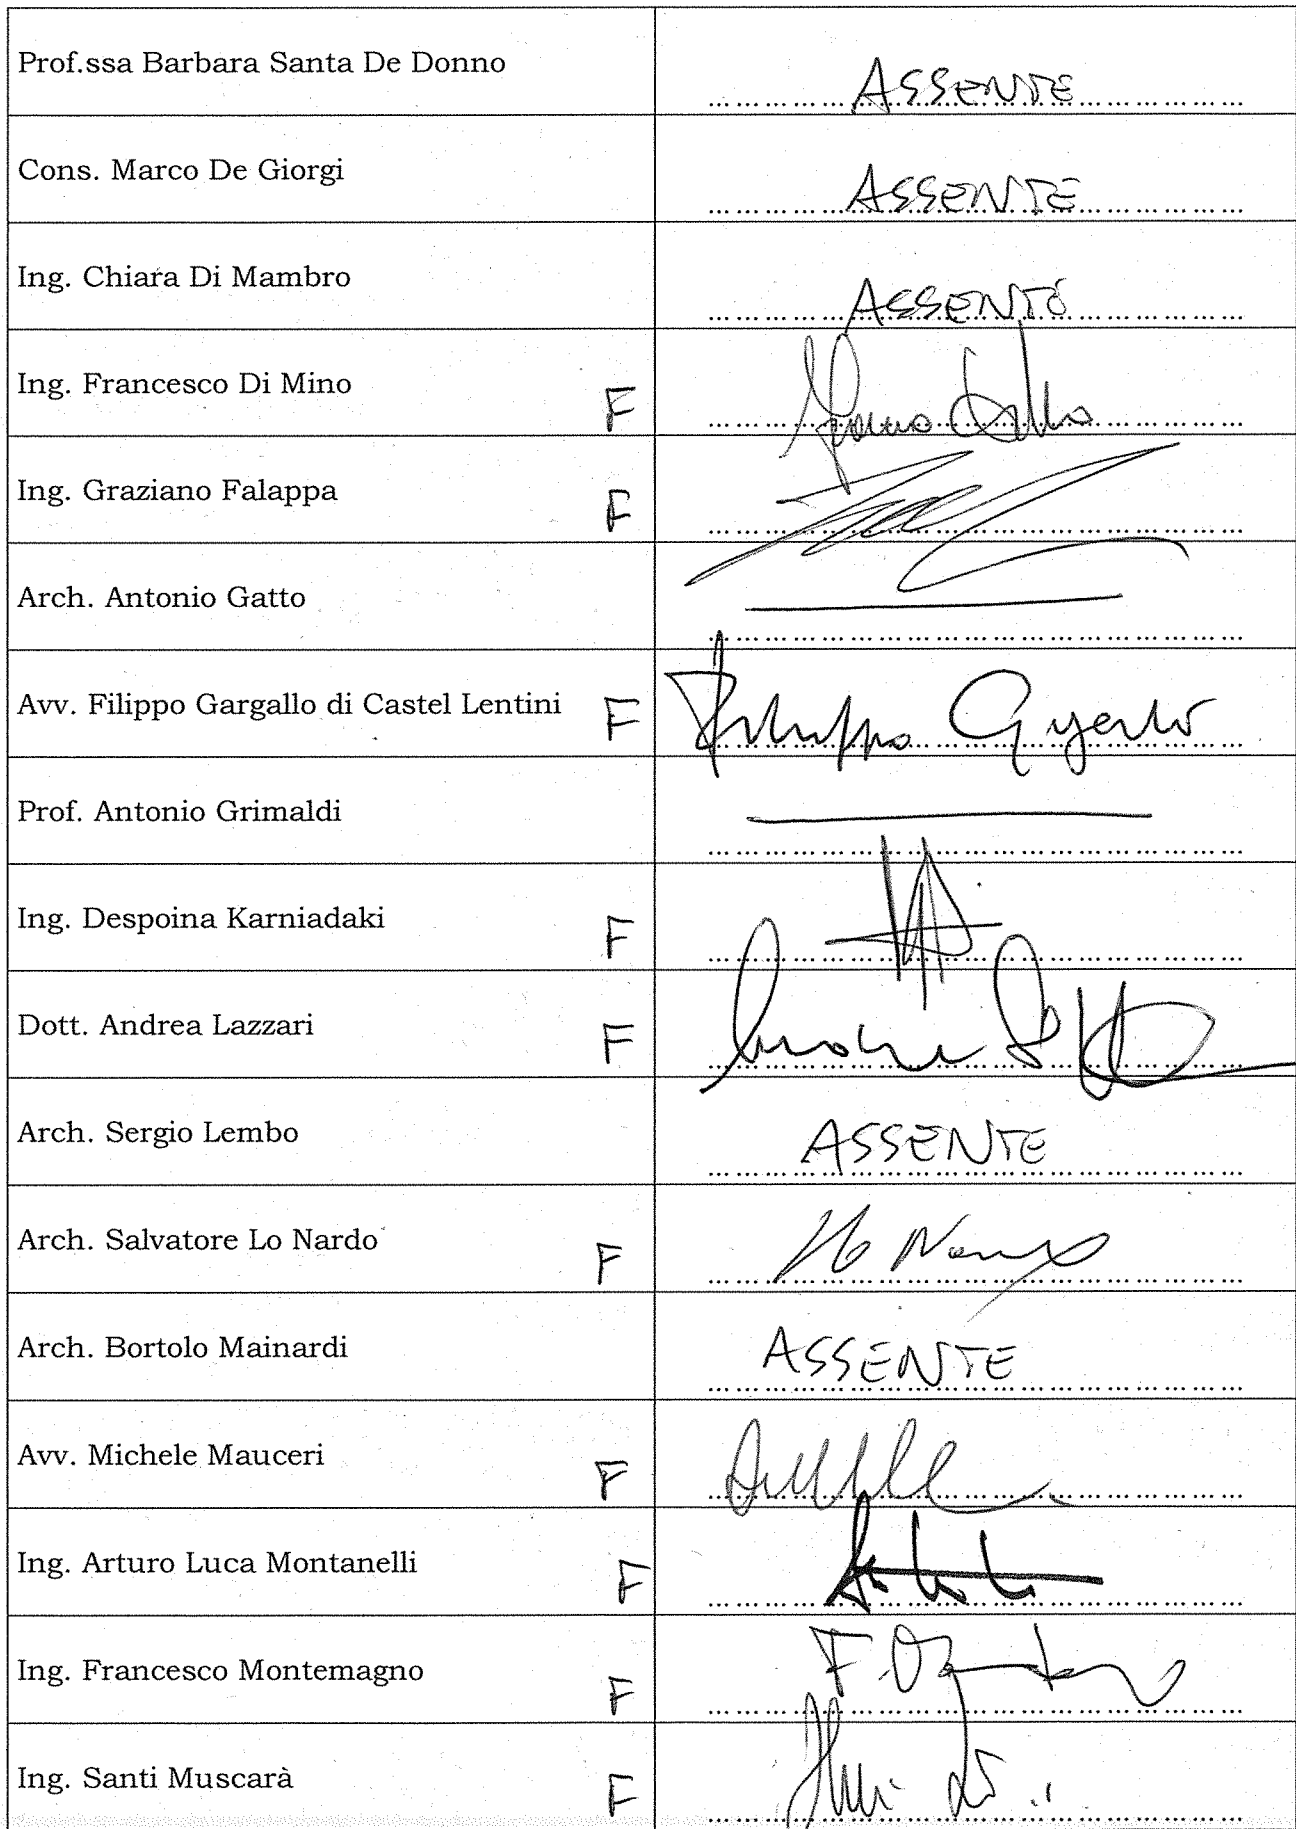 Prof.ssa Barbara Santa De Donno ASSENTE
Cons. Marco De Giorgi ASSENTE
Ing. Chiara Di Mambro ASSENTE
Ing. Francesco Di Mino F
Ing. Graziano Falappa F
Arch. Antonio Gatto
Avv. Filippo Gargallo di Castel Lentini F Filippo
Prof. Antonio Grimaldi
Ing. Despoina Karniadaki F
Dott. Andrea Lazzari F
Arch. Sergio Lembo ASSENTE
Arch. Salvatore Lo Nardo F
Arch. Bortolo Mainardi ASSENTE
Avv. Michele Mauceri F
Ing. Arturo Luca Montanelli F
Ing. Francesco Montemagno F
Ing. Santi Muscarà F